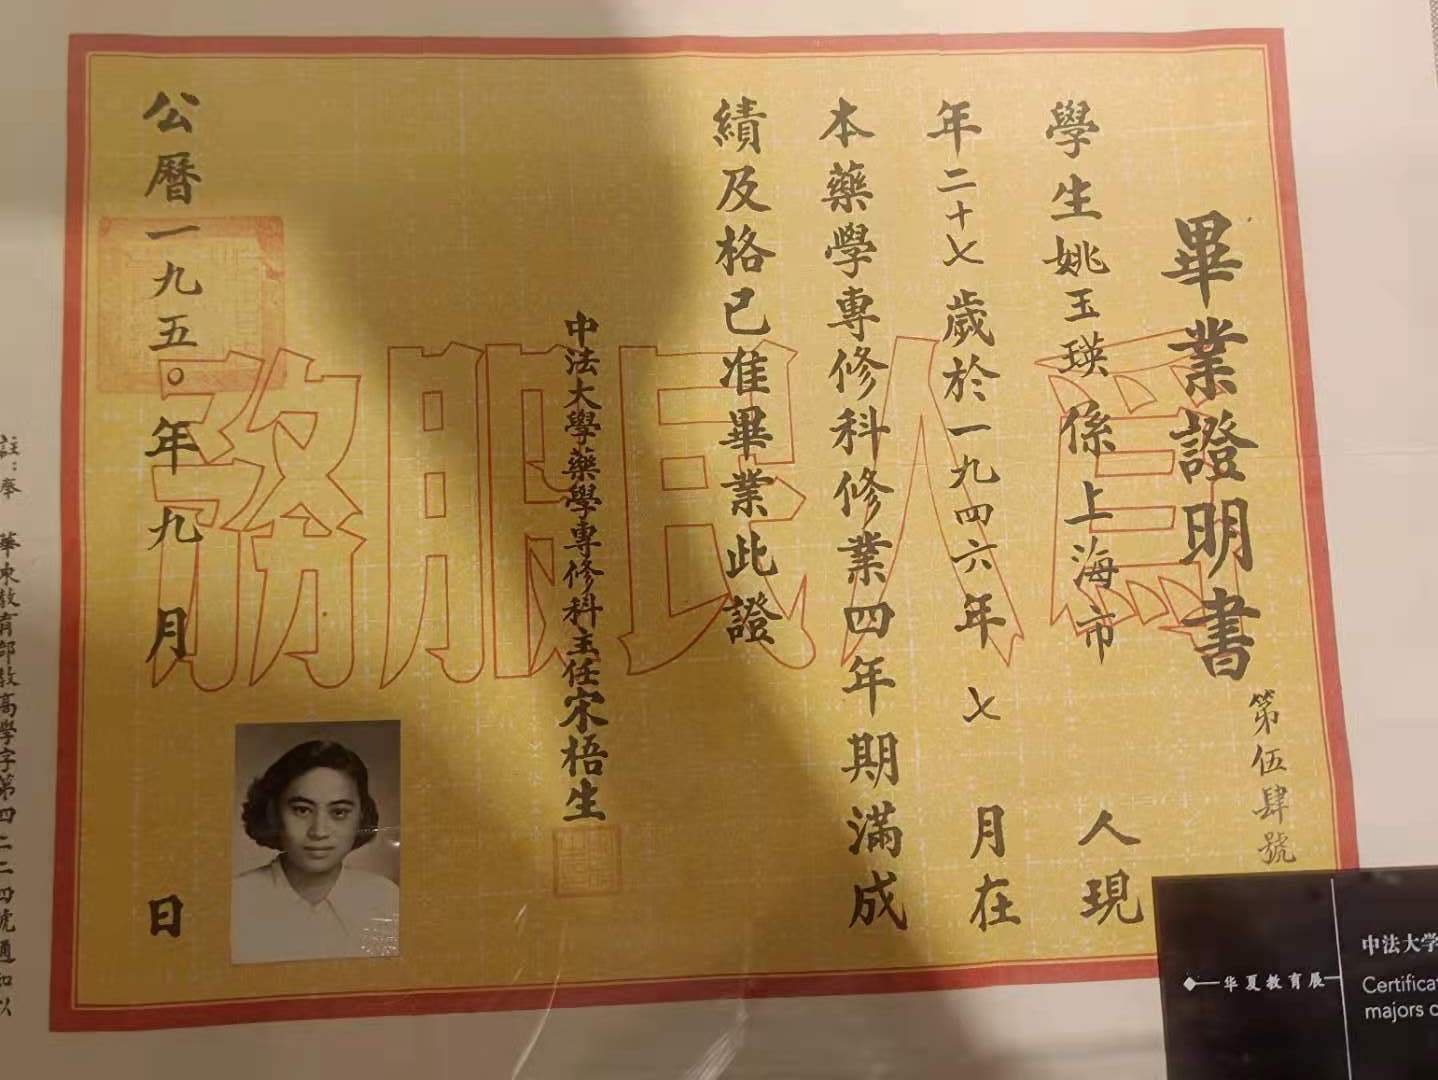 畢業證明書
第伍肆號
學生姚玉瑛係上海市人現
年二十七歲於一九四六年七月在
本藥學專修科修業四年期滿成
績及格已准畢業此證
中法大學藥學專修科主任宋梧生
公曆一九五〇年九月日
為人民服務
註：奉華東教育部教高學字第四二二四號通知以
華夏教育展
中法大学
Certifica
majors o